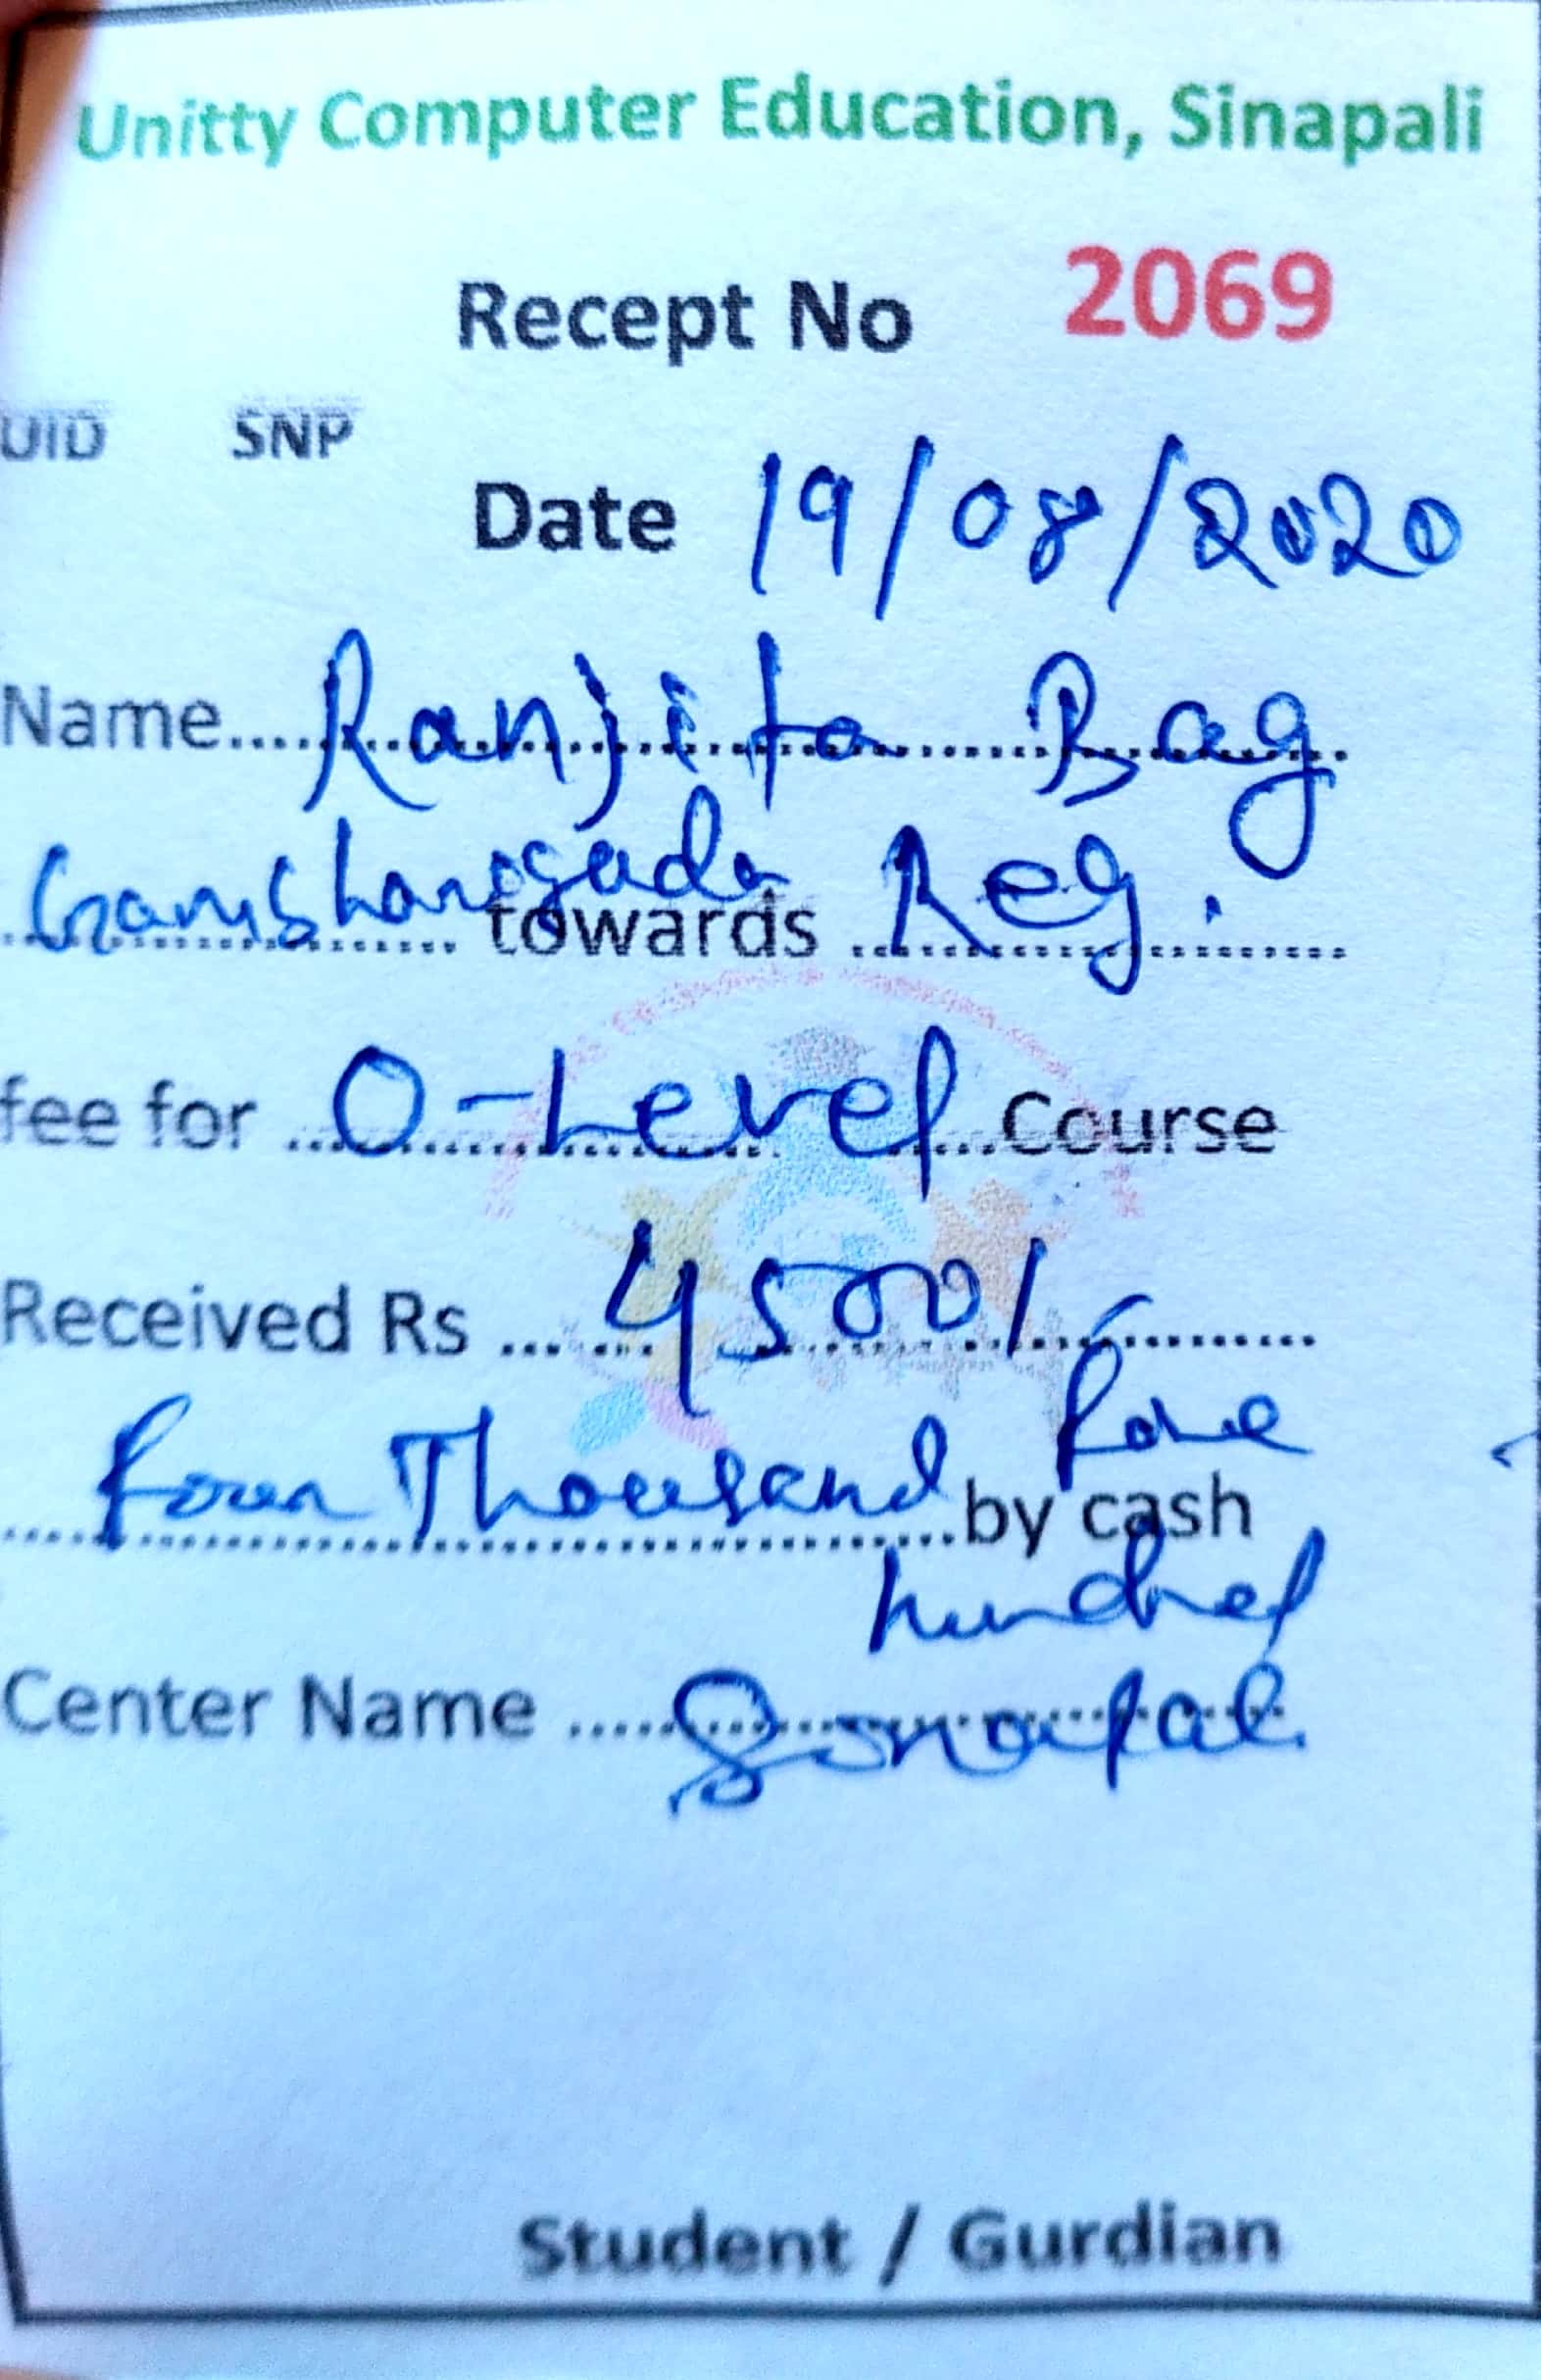 Unitty Computer Education, Sinapali
Recept No 2069
UID SNP
Date 19/08/2020
Name Ranjita Bag
towards Reg.
fee for O-Level Course
Received Rs 4500/-
Four Thousand Five
by cash
hundred
Center Name Sinapali
Student / Gurdian